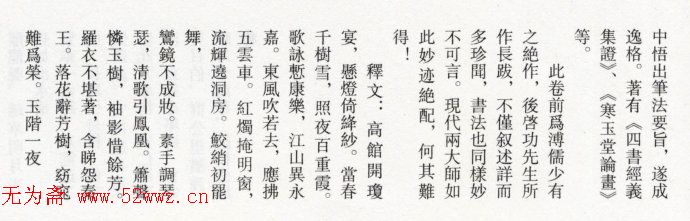 中悟出筆法要旨，遂成
逸格。著有《四書經義
集證》、《寒玉堂論畫》
等。
此卷前爲溥儒少有
之絶作，後啓功先生所
作長跋，不僅叙述詳而
多珍聞，書法也同樣妙
不可言。現代兩大師如
此妙迹絶配，何其難
得！
釋文：高館開瓊
宴，懸燈倚絳紗。當春
千樹雪，照夜百重霞。
歌詠慙康樂，江山異永
嘉。東風吹若去，應拂
五雲車。紅燭掩明窗，
流輝遶洞房。鮫綃初罷
舞，
鸞鏡不成妝。素手調琴
瑟，清歌引鳳凰。簫聲
憐玉樹，袖影惜餘芳。
羅衣不堪著，含睇怨春
王。落花辭芳樹，窈窕
難爲榮。玉階一夜
无为斋 www.52wwz.cn